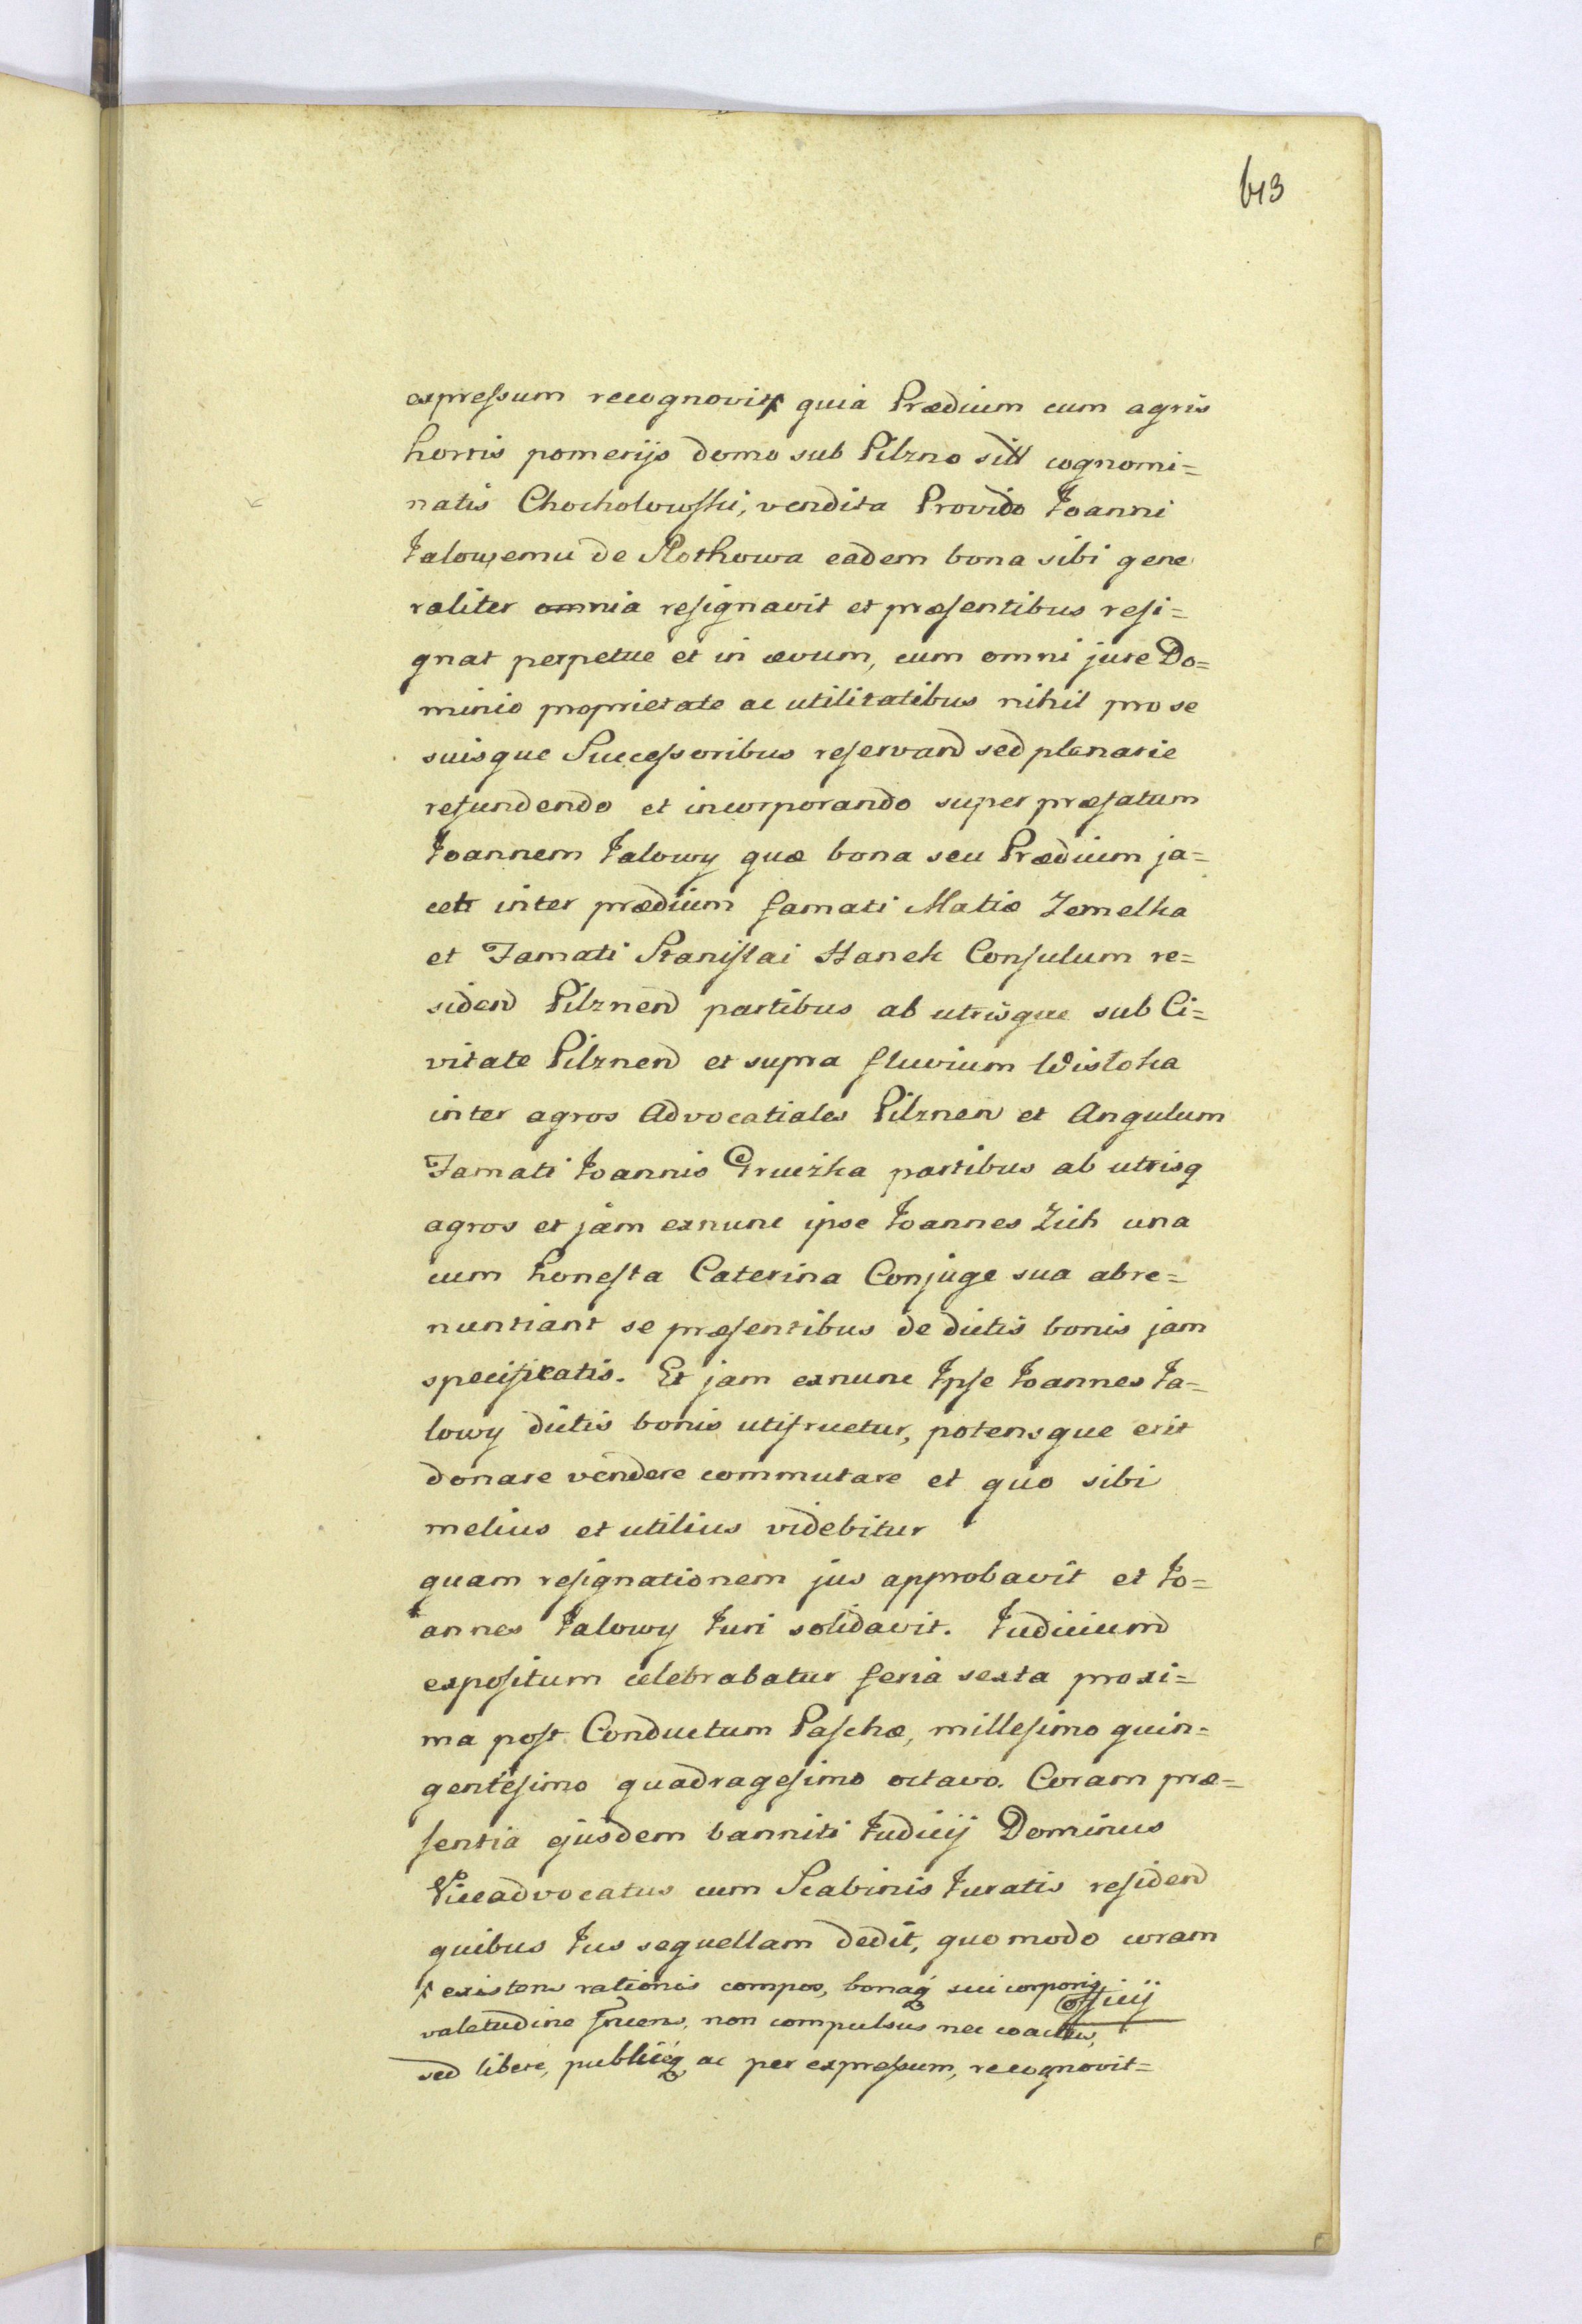 613
expressum recognovit quia Prædium cum agris
hortis pomerijs domo sub Pilzno sitt cognomi=
natis Chocholowski, vendita Provido Joanni
Jalowemu de Mokhowa eadem bona sibi gene
raliter omnia resignavit et præsentibus resi=
gnat perpetue et in ævum, cum omni jure Do=
minio proprietate ac utilitatibus nihil pro se
suisque Successoribus reservand sed plenarie
refundendo et incorporando super præfatum
Joannem Jalowy quæ bona seu Prædium ja=
cet inter prædium famati Matiæ Zemelka
et Famati Stanislai Hanek Consulum re=
siden Pilznen partibus ab utrisque sub Ci=
vitate Pilznen et supra fluvium Wisloka
inter agros Advocatiales Pilznen et Angulum
Famati Joannis Gruczka partibus ab utrisq
agros et jam exnunc ipse Joannes Zich una
cum honesta Caterina Conjuge sua abre=
nuntiant se præsentibus de dictis bonis jam
specificatis. Et jam exnunc Ipse Joannes Ja=
lowy dictis bonis utifruetur, potensque erit
donare vendere commutare et quo sibi
melius et utilius videbitur
quam resignationem jus approbavit et Jo=
annes Jalowy Juri solidavit. Judicium
expositum celebrabatur feria sexta proxi=
ma post Conductum Paschæ, millesimo quin=
gentesimo quadragesimo octavo. Coram præ=
sentia ejusdem banniti Judicij Dominus
Viceadvocatus cum Scabinis Juratis residen
quibus Jus sequellam dedit, quo modo coram
officij
existens rationis compos, bonaq sui corporis
valetudine fruens, non compulsus nec coactus,
sed libere, publiceq ac per expressum, recognovit=